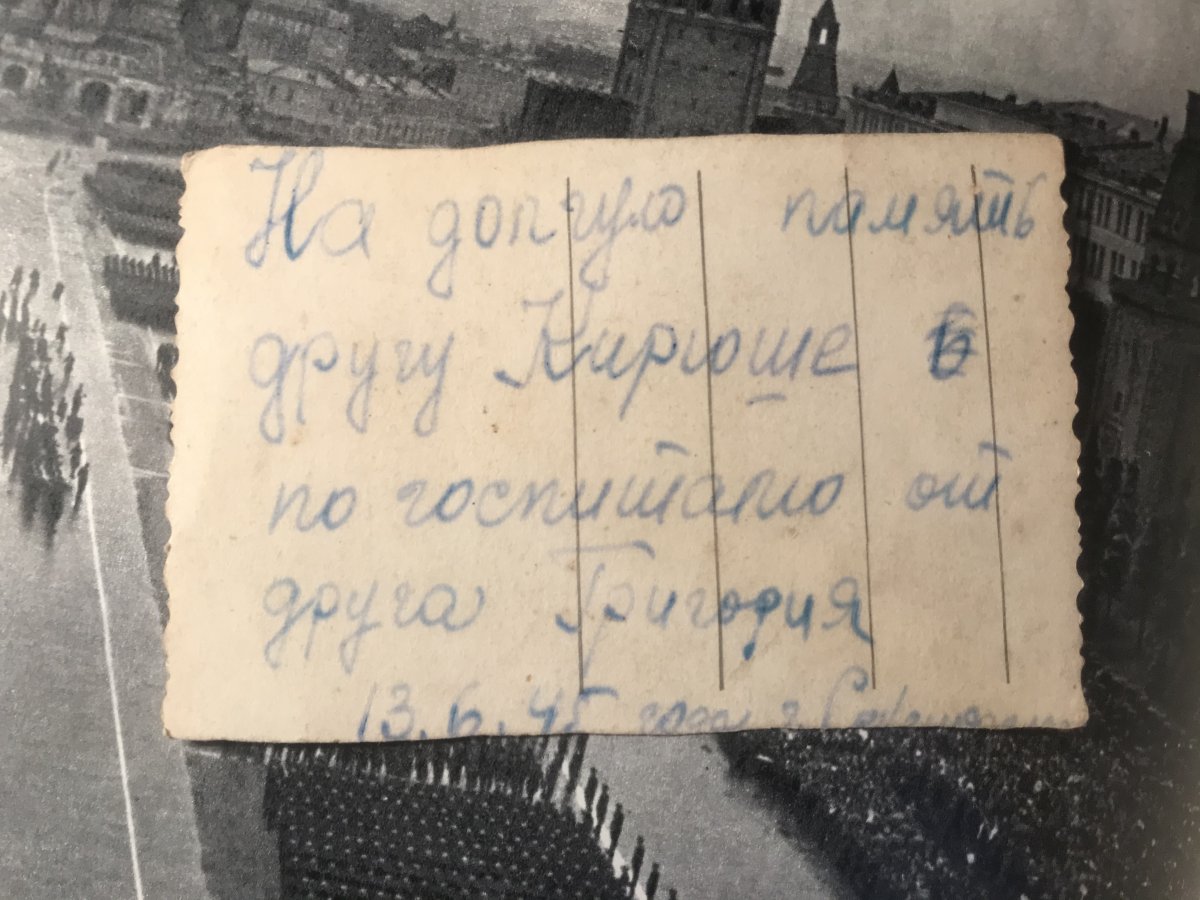 На долгую память
другу Кирюше
по госпиталю от
друга Григория
13.6.45 года г.